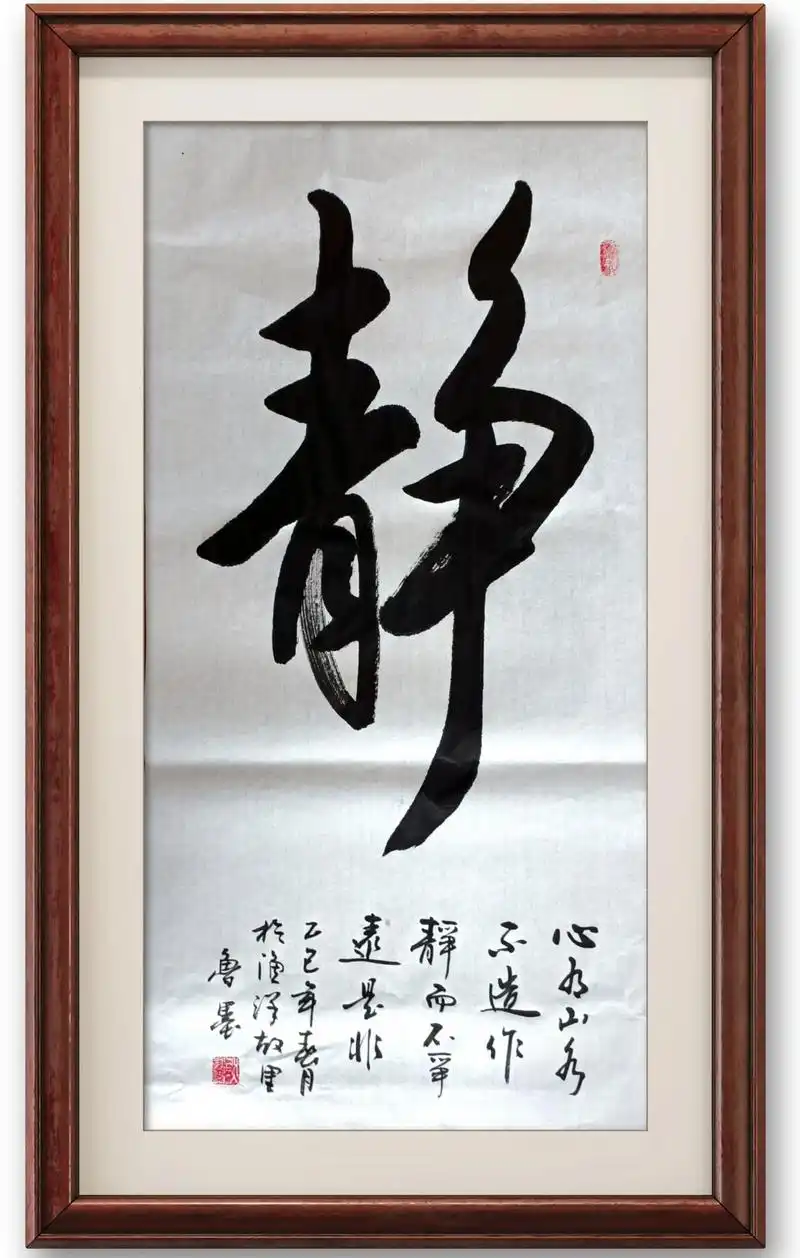 静
心有山水
不造作
静而不争
遠是非
乙巳年春月
於渔洋故里
魯墨